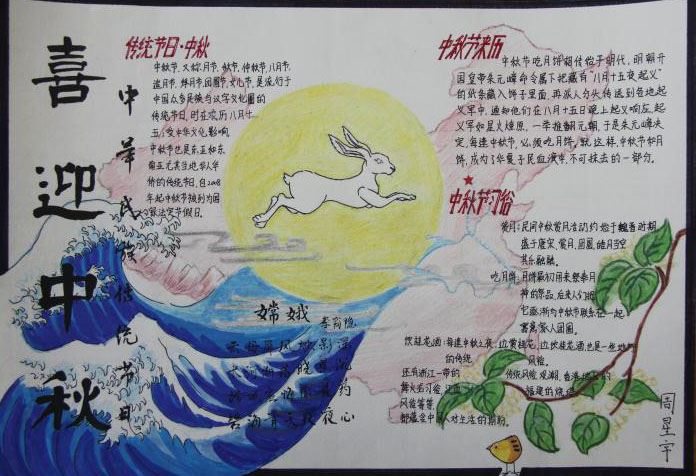 喜迎中秋
中华民族传统节日
传统节日·中秋
中秋节，又称月节、秋节、仲秋节、八月节、
追月节、拜月节、团圆节、女儿节，是流行于
中国众多民族与汉字文化圈的
传统节日，时在农历八月十
五；受中华文化影响，
中秋节也是东亚和东
南亚尤其当地华人华
侨的传统节日，自2008
年起中秋节被列为国
家法定节假日。
中秋节来历
中秋节吃月饼相传始于明代，明朝开
国皇帝朱元璋命令属下把藏有"八月十五夜起义"
的纸条藏入饼子里面，再派人分头传送到各地起
义军中，通知他们在八月十五日晚上起义响应，起
义军如星火燎原，一举推翻元朝，于是朱元璋决
定，每逢中秋节，必须吃月饼，就这样，中秋节和月
饼，成为了华夏子民血液中，不可抹去的一部分。
中秋节习俗
赏月：民间中秋赏月活动约始于魏晋时期，
盛于唐宋，赏月，团圆，皓月当空
其乐融融。
吃月饼：月饼最初用来祭奉月
神的祭品，后来人们把
它逐渐与中秋节联系在一起
寓意家人团圆。
饮桂花酒：每逢中秋之夜，
的传统
还有浙江一带的
风俗等等，
嫦娥
李商隐
云母屏风烛影深
夜心
周星宇